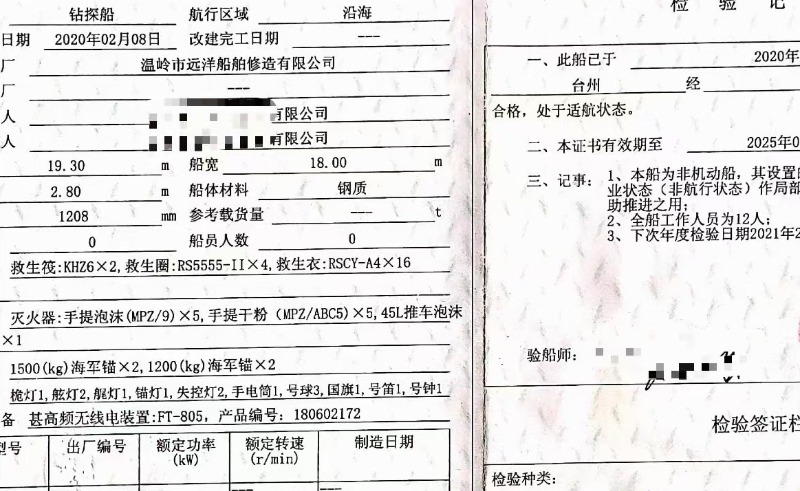 钻探船 航行区域 沿海
日期 2020年02月08日 改建完工日期 ---
厂 温岭市远洋船舶修造有限公司
厂 ---
人 有限公司
人 有限公司
19.30 m 船宽 18.00 m
2.80 m 船体材料 钢质
1208 mm 参考载货量 --- t
0 船员人数 0
救生筏:KHZ6×2,救生圈:RS5555-II×4,救生衣:RSCY-A4×16
灭火器:手提泡沫(MPZ/9)×5,手提干粉(MPZ/ABC5)×5,45L推车泡沫
×1
1500(kg)海军锚×2,1200(kg)海军锚×2
桅灯1,舷灯2,艉灯1,锚灯1,失控灯2,手电筒1,号球3,国旗1,号笛1,号钟1
备 甚高频无线电装置:FT-805,产品编号:180602172
型号 出厂编号 额定功率 额定转速 制造日期
(kW) (r/min)
检 验 记
一、此船已于 2020年
台州 经
合格,处于适航状态。
二、本证书有效期至 2025年0
三、记事: 1、本船为非机动船,其设置的
业状态(非航行状态)作局部
助推进之用;
2、全船工作人员为12人;
3、下次年度检验日期2021年2
验船师:
检验签证栏
检验种类: